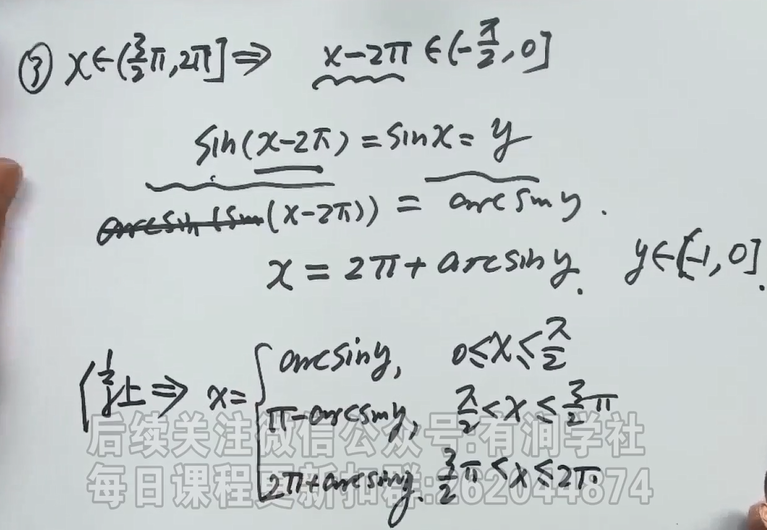 ③ x∈(3/2π,2π]⇒ x-2π∈(-π/2,0]
sin(x-2π)=sinx=y
arcsin(sin(x-2π))=arcsiny.
x=2π+arcsiny. y∈[-1,0].
综上⇒ x={arcsiny, 0≤x≤π/2
π-arcsiny, π/2<x≤3/2π
2π+arcsiny. 3/2π<x≤2π.
后续关注微信公众号:有润学社
每日课程更新扣群:262044874